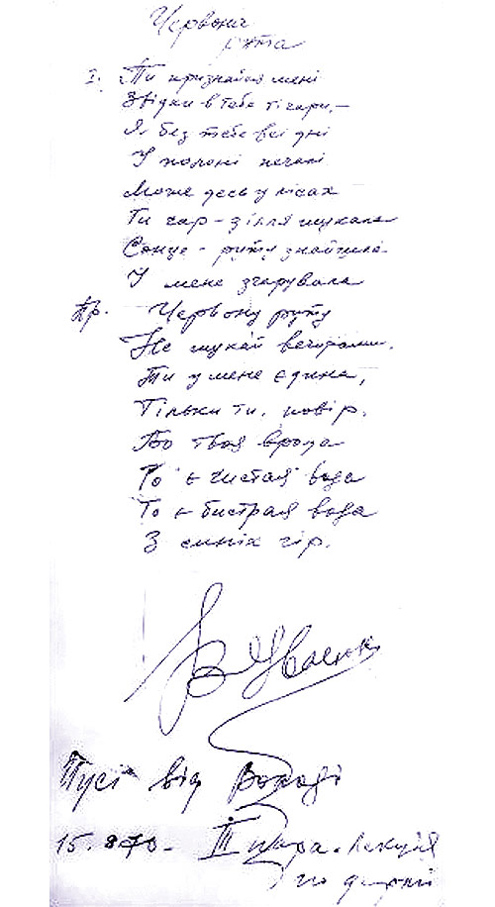 Червона
рута
I. Ти признайся мені
Звідки в тебе ті чари, –
Я без тебе всі дні
У полоні печалі
Може десь у лісах
Ти чар-зілля шукала
Сонце-руту знайшла
У мене зчарувала
Пр. Червону руту
Не шукай вечорами.
Ти у мене єдина,
Тільки ти, повір.
Бо твоя врода
То є чистая вода
То є бистрая вода
З синіх гір.
В Івасюк
Тусі від Володі
15. 870 – III пара. Лекція
по